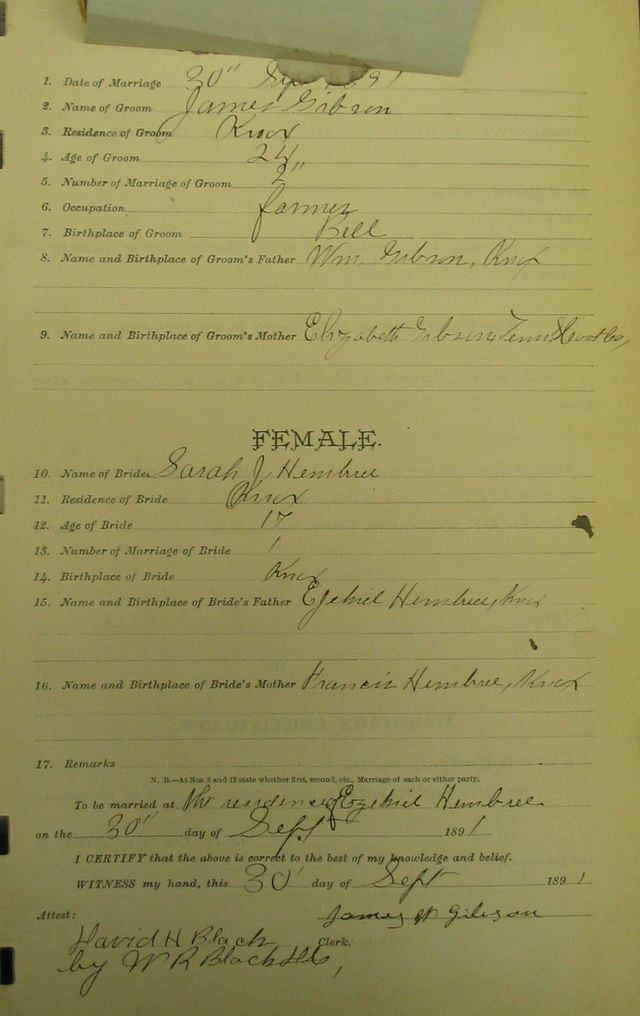 1. Date of Marriage 30" Sept 1891
2. Name of Groom James Gibson
3. Residence of Groom Knox
4. Age of Groom 24
5. Number of Marriage of Groom 2"
6. Occupation farmer
7. Birthplace of Groom Bell
8. Name and Birthplace of Groom's Father Wm. Gibson, Knox
9. Name and Birthplace of Groom's Mother Elizabeth Gibson, Tenn
FEMALE.
10. Name of Bride Sarah J Hembree
11. Residence of Bride Knox
12. Age of Bride 17
13. Number of Marriage of Bride 1
14. Birthplace of Bride Knox
15. Name and Birthplace of Bride's Father Ezekiel Hembree, Knox
16. Name and Birthplace of Bride's Mother Francis Hembree, Knox
17. Remarks
N. B.—At Nos. 5 and 13 state whether first, second, etc., Marriage of each or either party.
To be married at the residence of Ezekiel Hembree
on the 30" day of Sept 1891
I CERTIFY that the above is correct to the best of my knowledge and belief.
WITNESS my hand, this 30 day of Sept 1891
Attest: James W Gibson
David H Black Clerk.
by W R Black